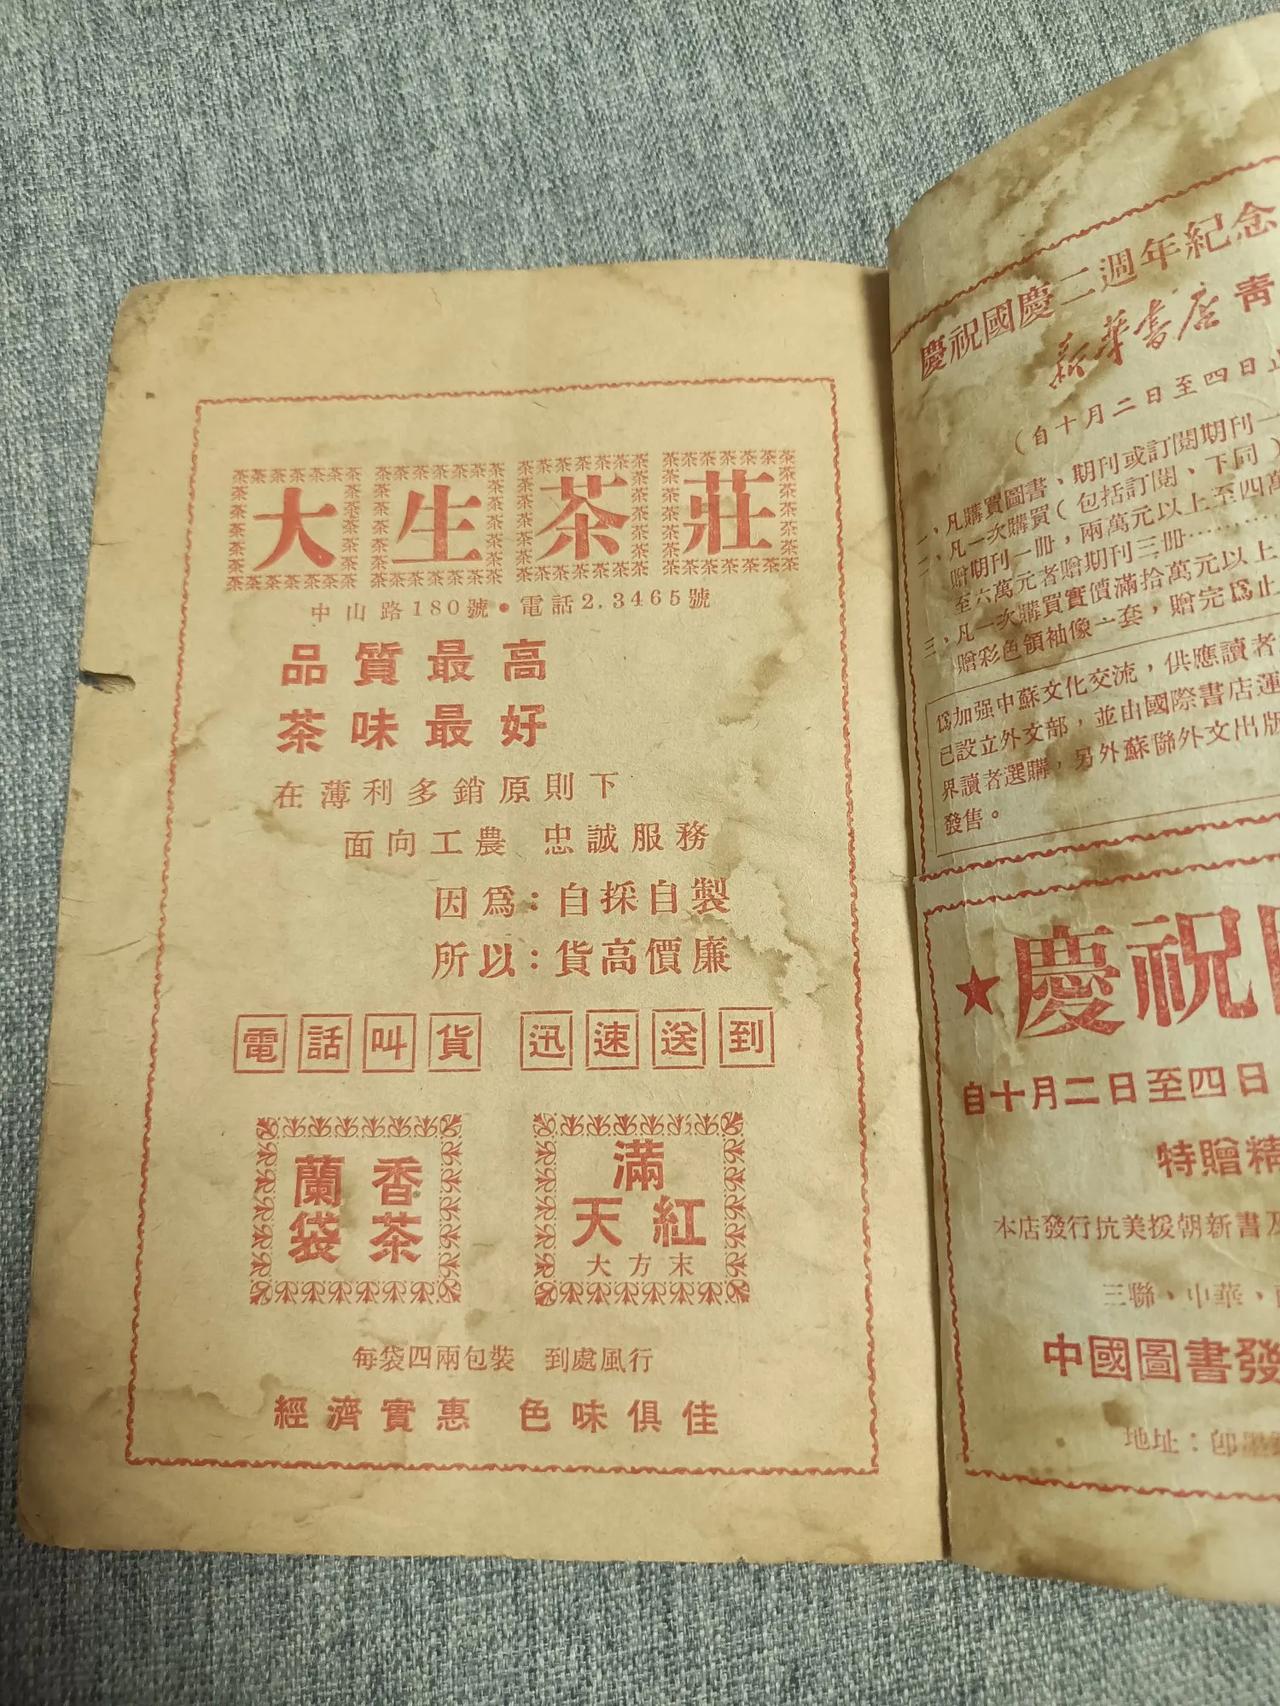 大生茶莊
中山路180號•電話2.3465號
品質最高
茶味最好
在薄利多銷原則下
面向工農 忠誠服務
因爲：自採自製
所以：貨高價廉
電話叫貨 迅速送到
蘭香
袋茶
滿
天紅
大方末
每袋四兩包裝 到處風行
經濟實惠 色味俱佳
慶祝國慶二週年紀念
新華書店青
（自十月二日至四日止
一、凡購買圖書、期刊或訂閱期刊一
二、凡一次購買（包括訂閱、下同）
贈期刊一冊，兩萬元以上至四萬
至六萬元者贈期刊三冊……
三、凡一次購買實價滿拾萬元以上
贈彩色領袖像一套，贈完爲止
爲加强中蘇文化交流，供應讀者
已設立外文部，並由國際書店運
界讀者選購，另外蘇聯外文出版
發售。
★慶祝
自十月二日至四日
特贈精
本店發行抗美援朝新書及
三聯、中華、
中國圖書發
地址：卽墨